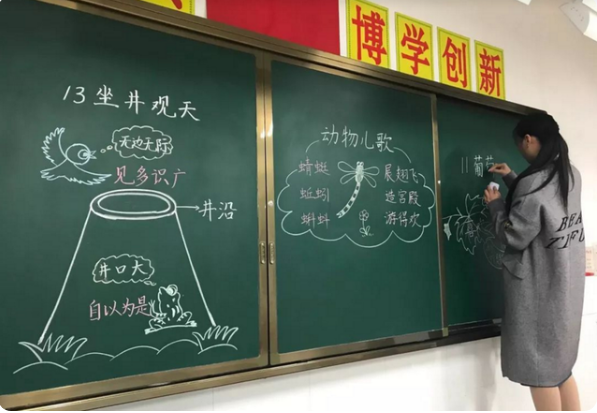 博学创新
13 坐井观天
无边无际
见多识广
井沿
井口大
自以为是
动物儿歌
蜻蜓 展翅飞
蚯蚓 造宫殿
蝌蚪 游得欢
11 葡萄
BEA
TIFU